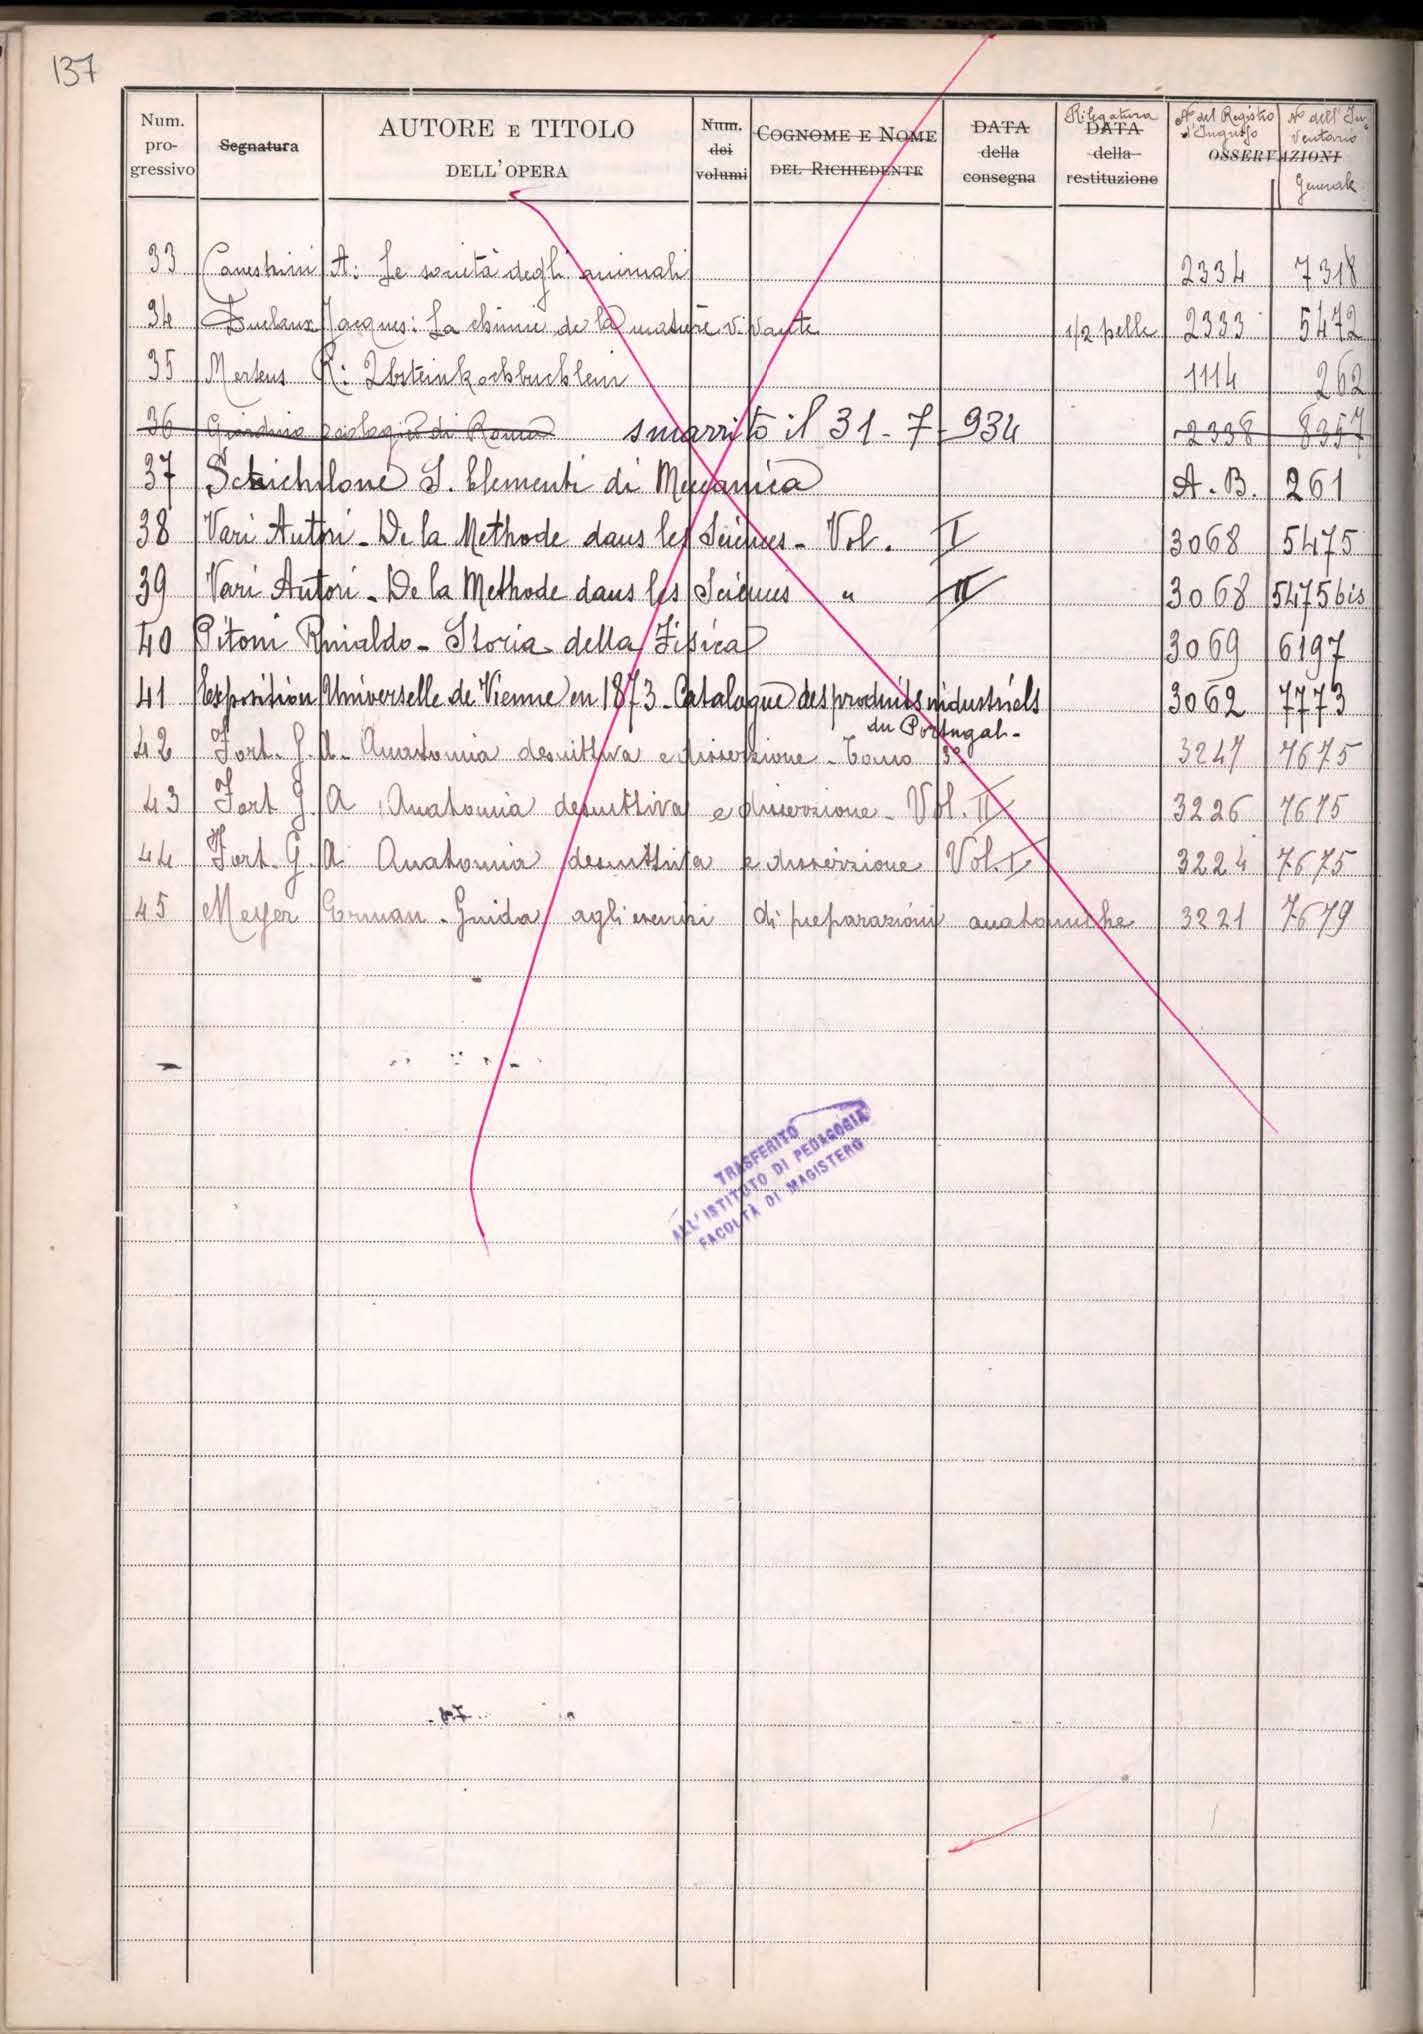 137
Num. pro- gressivo Segnatura AUTORE E TITOLO DELL'OPERA Num. dei volumi COGNOME E NOME DEL RICHIEDENTE DATA della consegna Rilegatura DATA della restituzione N° del Registro d'Ingresso OSSERVAZIONI N° dell'In- ventario Generale
33 Canestrini A: Le società degli animali 2334 7318
34 Duclaux Jacques: La chimie de la matière vivante 1/2 pelle 2333 5472
35 Mertens R: 1114 262
36 Giardino zoologico di Roma smarrito il 31-7-934 2338 8357
37 S. Elementi di Meccanica A.B. 261
38 Vari Autori - De la Methode dans les Sciences - Vol. I 3068 5475
39 Vari Autori - De la Methode dans les Sciences " II 3068 5475 bis
40 Pitoni Rinaldo - Storia della Fisica 3069 6197
41 Exposition Universelle de Vienne en 1873 - Catalogue des produits industriels 3062 7773
du Portugal -
42 Fort. G. A. Anatomia descrittiva e dissezione - Tomo 3° 3247 7675
43 Fort G. A Anatomia descrittiva e dissezione - Vol. II 3226 7675
44 Fort. G. A Anatomia descrittiva e dissezione Vol. I 3224 7675
45 Meyer Erman - Guida agli esercizi di preparazioni anatomiche 3221 7679
TRASFERITO
ALL'ISTITUTO DI PEDAGOGIA
FACOLTÀ DI MAGISTERO